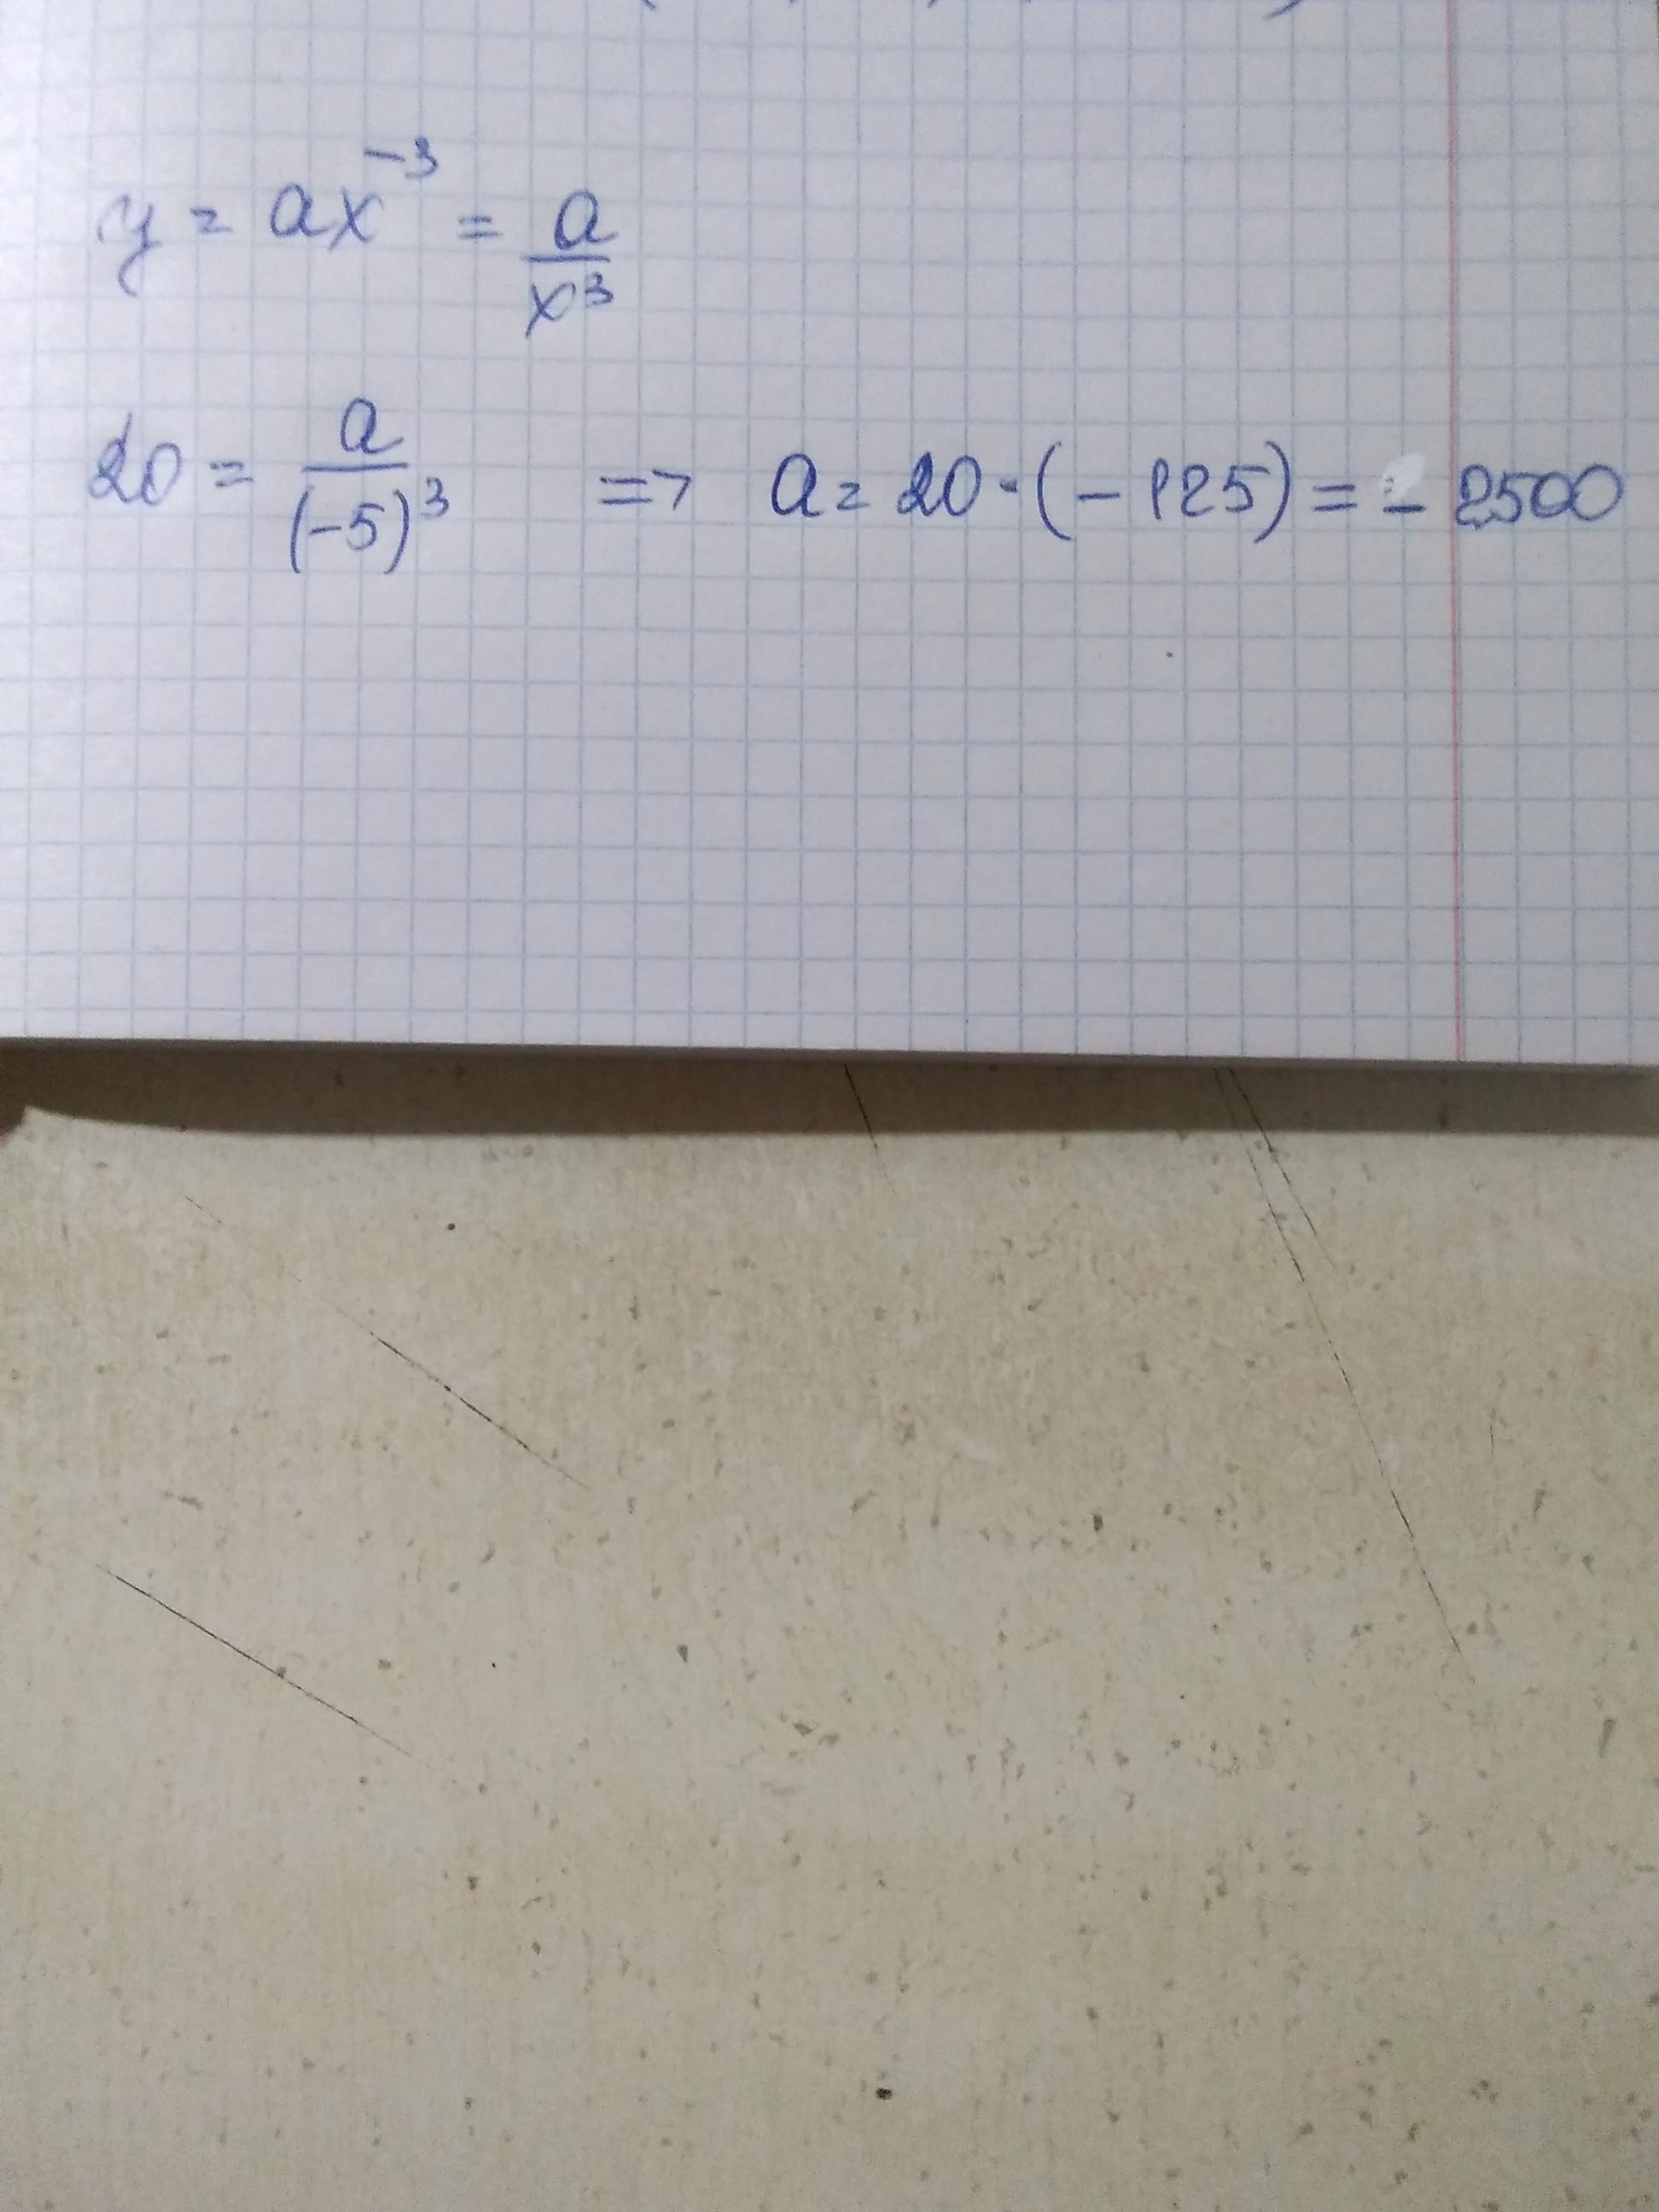 y = ax⁻³ = a/x³
20 = a/(-5)³ => a = 20·(-125) = - 2500